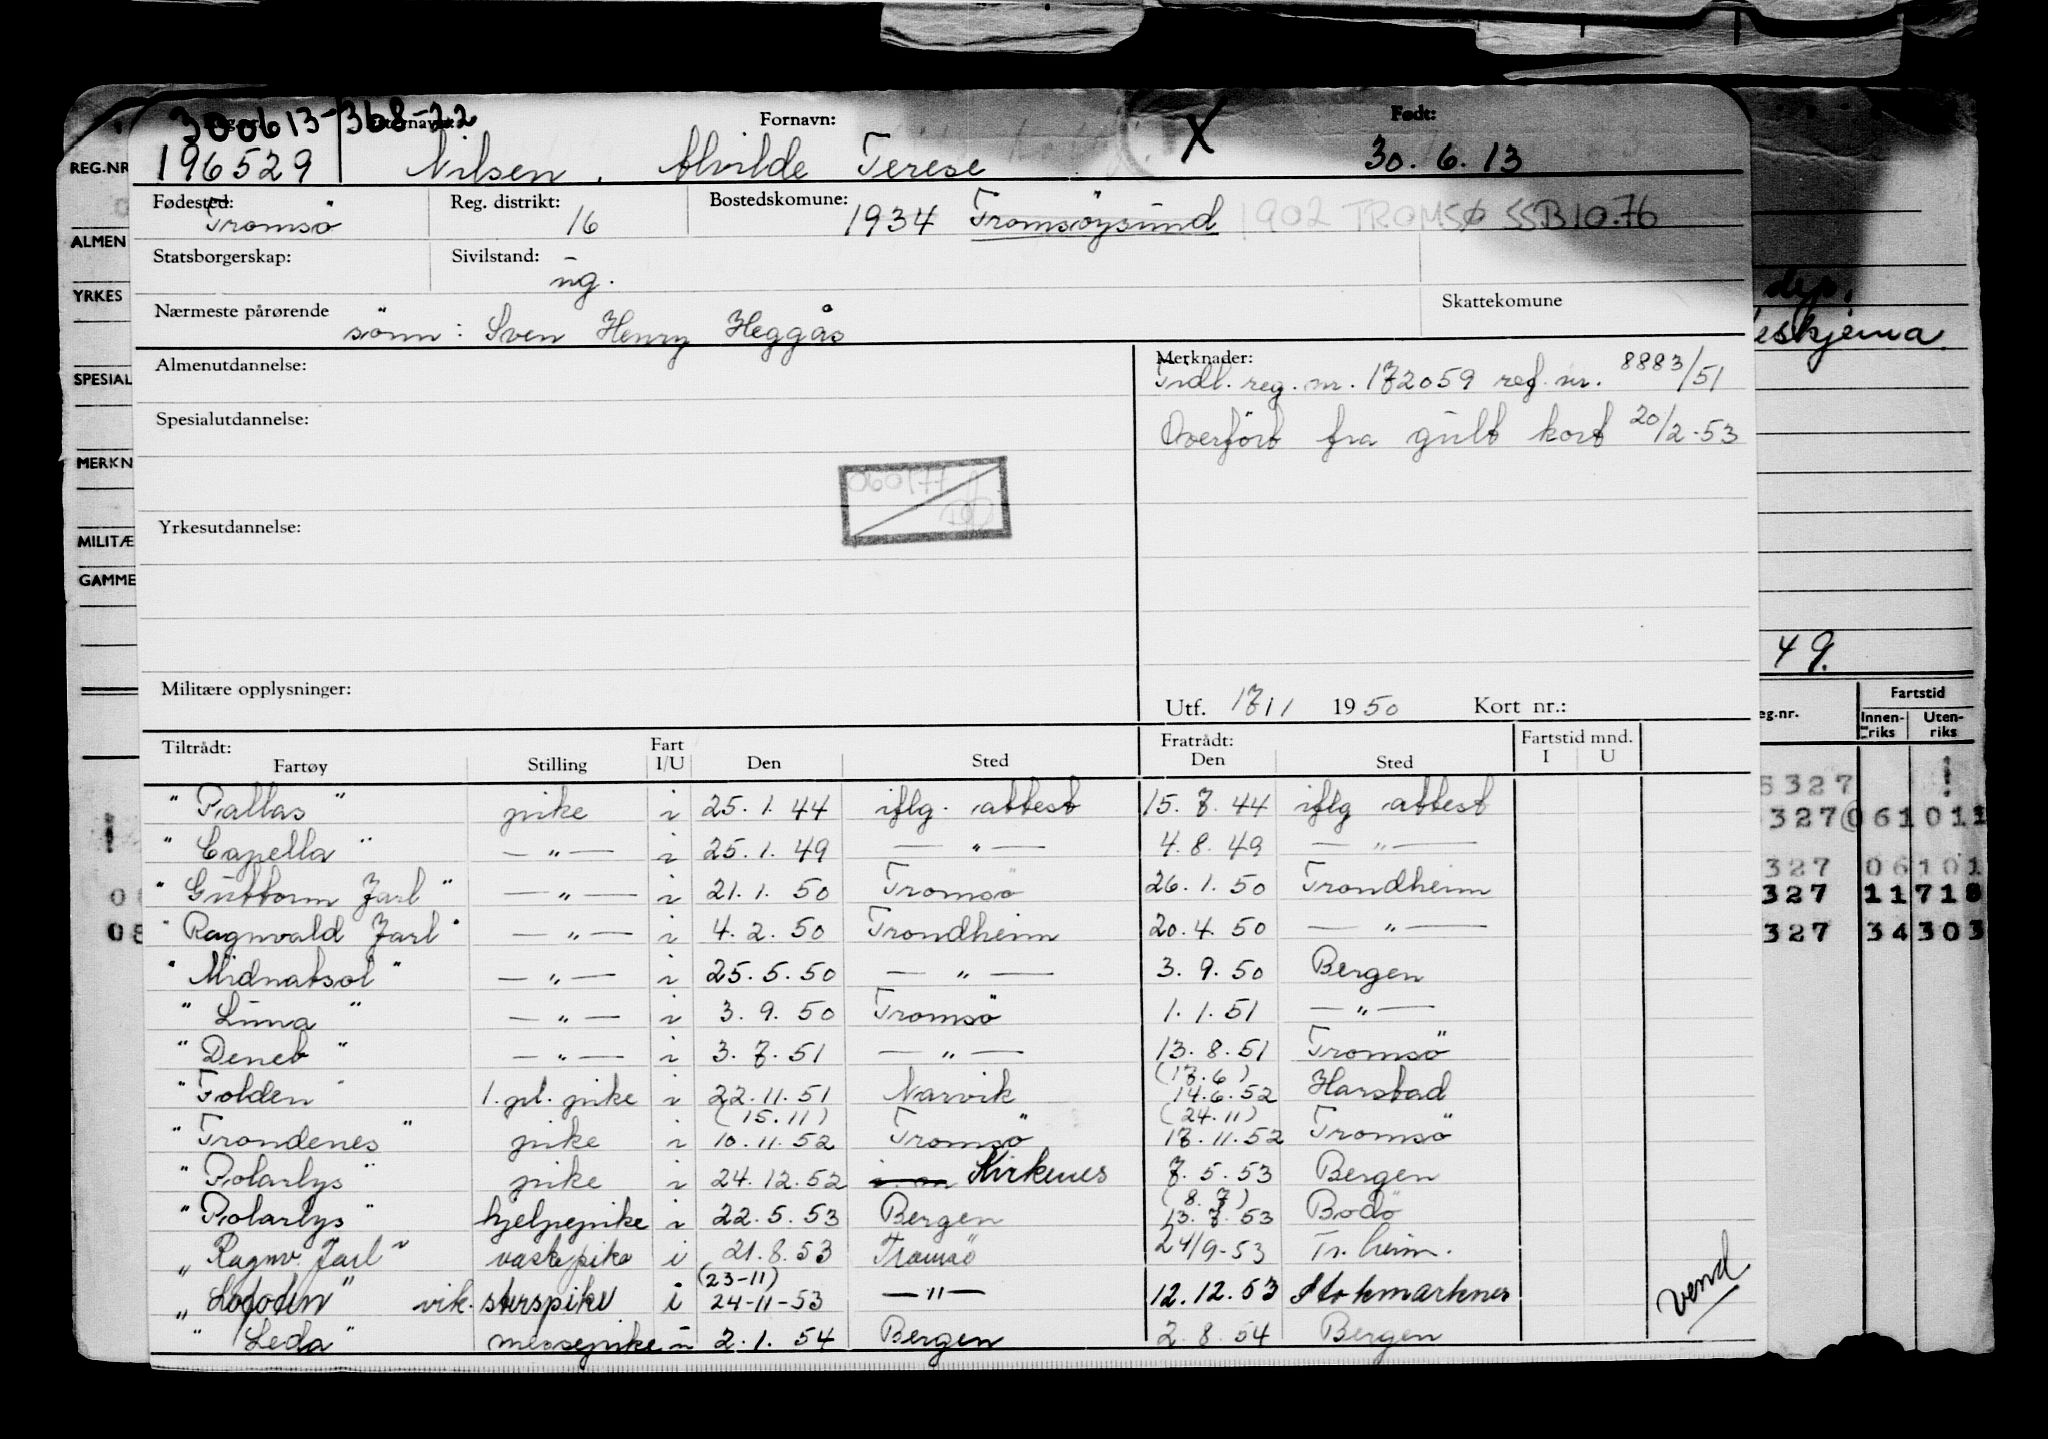 300613-368-22
Fornavn: X Født:
REG.NR 196529 Nilsen, Alvilde Terese 30.6.13
Fødested: Tromsö Reg. distrikt: 16 Bostedskomune: 1934 Tromsöysund 1902 TROMSØ SSB 10.76
ALMEN
Statsborgerskap: Sivilstand: ug.
YRKES dep.
Nærmeste pårørende sönn: Sven Henry Heggås Skattekomune
eskjema
Almenutdannelse: Merknader:
SPESIAL Tidl. reg. nr. 172059 ref. nr. 8883/51
Spesialutdannelse: Overfört fra gult kort 20/2-53
MERKN
060177
Yrkesutdannelse:
MILITÆ
GAMME
49.
Militære opplysninger: Utf. 17/1 1950 Kort nr.:
Fartstid
eg.nr. Innen-riks Uten-riks
Tiltrådt: Fart Fratrådt: Fartstid mnd.
Fartøy Stilling I/U Den Sted Den Sted I U
"Pallas" pike i 25.1.44 iflg. attest 15.7.44 iflg attest 5327 !
! 327 061 011
"Capella" — " — i 25.1.49 — " — 4.8.49 — " —
327 06 101
"Guttorm Jarl" — " — i 21.1.50 Tromsö 26.1.50 Trondheim
0 327 11 718
"Ragnvald Jarl" — " — i 4.2.50 Trondheim 20.4.50 — " —
08 327 34 303
"Midnatsol" — " — i 25.5.50 — " — 3.9.50 Bergen
"Luna" — " — i 3.9.50 Tromsö 1.1.51 — " —
"Deneb" — " — i 3.7.51 — " — 13.8.51 Tromsö
(17.6)
"Folden" 1. pl. pike i 22.11.51 Narvik 14.6.52 Harstad
(15.11) (24.11)
"Trondenes" pike i 10.11.52 Tromsö 17.11.52 Tromsö
"Polarlys" pike i 24.12.52 Kirkenes 7.5.53 Bergen
(8.7)
"Polarlys" hjelpepike i 22.5.53 Bergen 13.7.53 Bodö
"Ragnv. Jarl" vaskepike i 21.8.53 Tromsö 24/9-53 Tr.heim.
(23-11)
"Lofoten" vik. i 24-11-53 — " — 12.12.53 Stokmarknes
vend
"Leda" messepike u 2.1.54 Bergen 2.8.54 Bergen